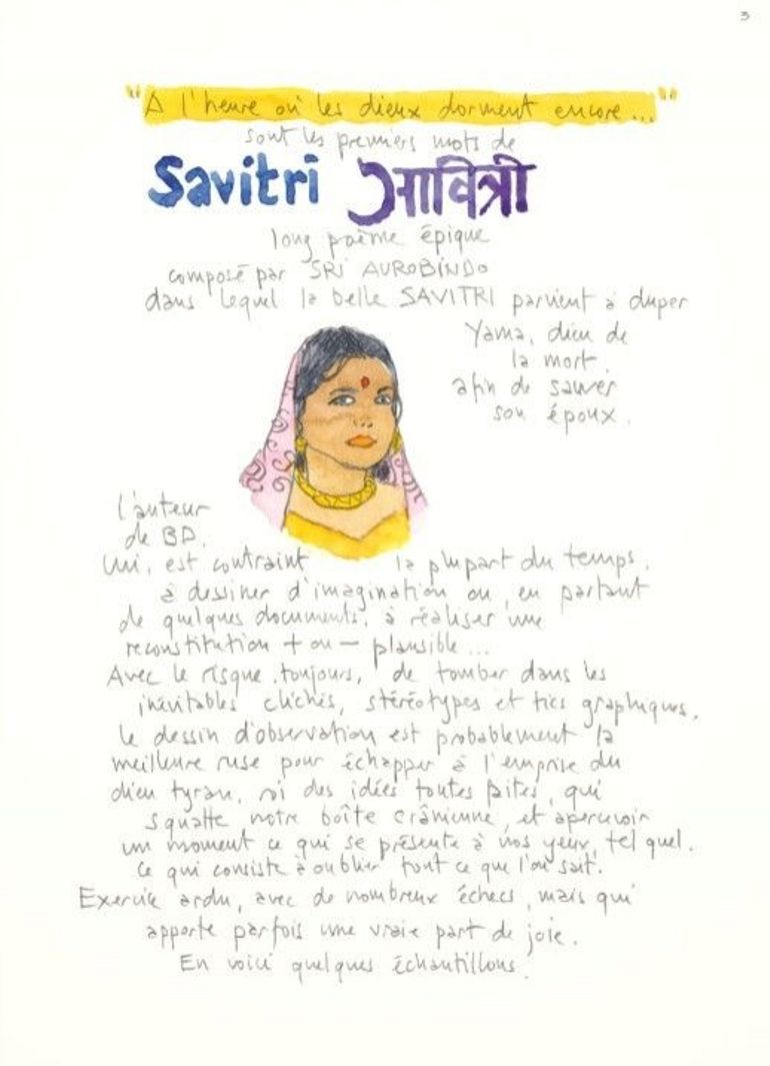 3
"A l'heure où les dieux dorment encore..."
sont les premiers mots de
Savitri सावित्री
long poème épique
composé par SRI AUROBINDO
dans lequel la belle SAVITRI parvient à duper
Yama, dieu de
la mort,
afin de sauver
son époux.
l'auteur
de BD,
lui, est contraint la plupart du temps,
à dessiner d'imagination ou, en partant
de quelques documents, à réaliser une
reconstitution + ou - plausible...
Avec le risque, toujours, de tomber dans les
inévitables clichés, stéréotypes et tics graphiques.
Le dessin d'observation est probablement la
meilleure ruse pour échapper à l'emprise du
dieu tyran, roi des idées toutes faites, qui
squatte notre boîte crânienne, et apercevoir
un moment ce qui se présente à nos yeux, tel quel.
Ce qui consiste à oublier tout ce que l'on sait.
Exercice ardu, avec de nombreux échecs, mais qui
apporte parfois une vraie part de joie.
En voici quelques échantillons.